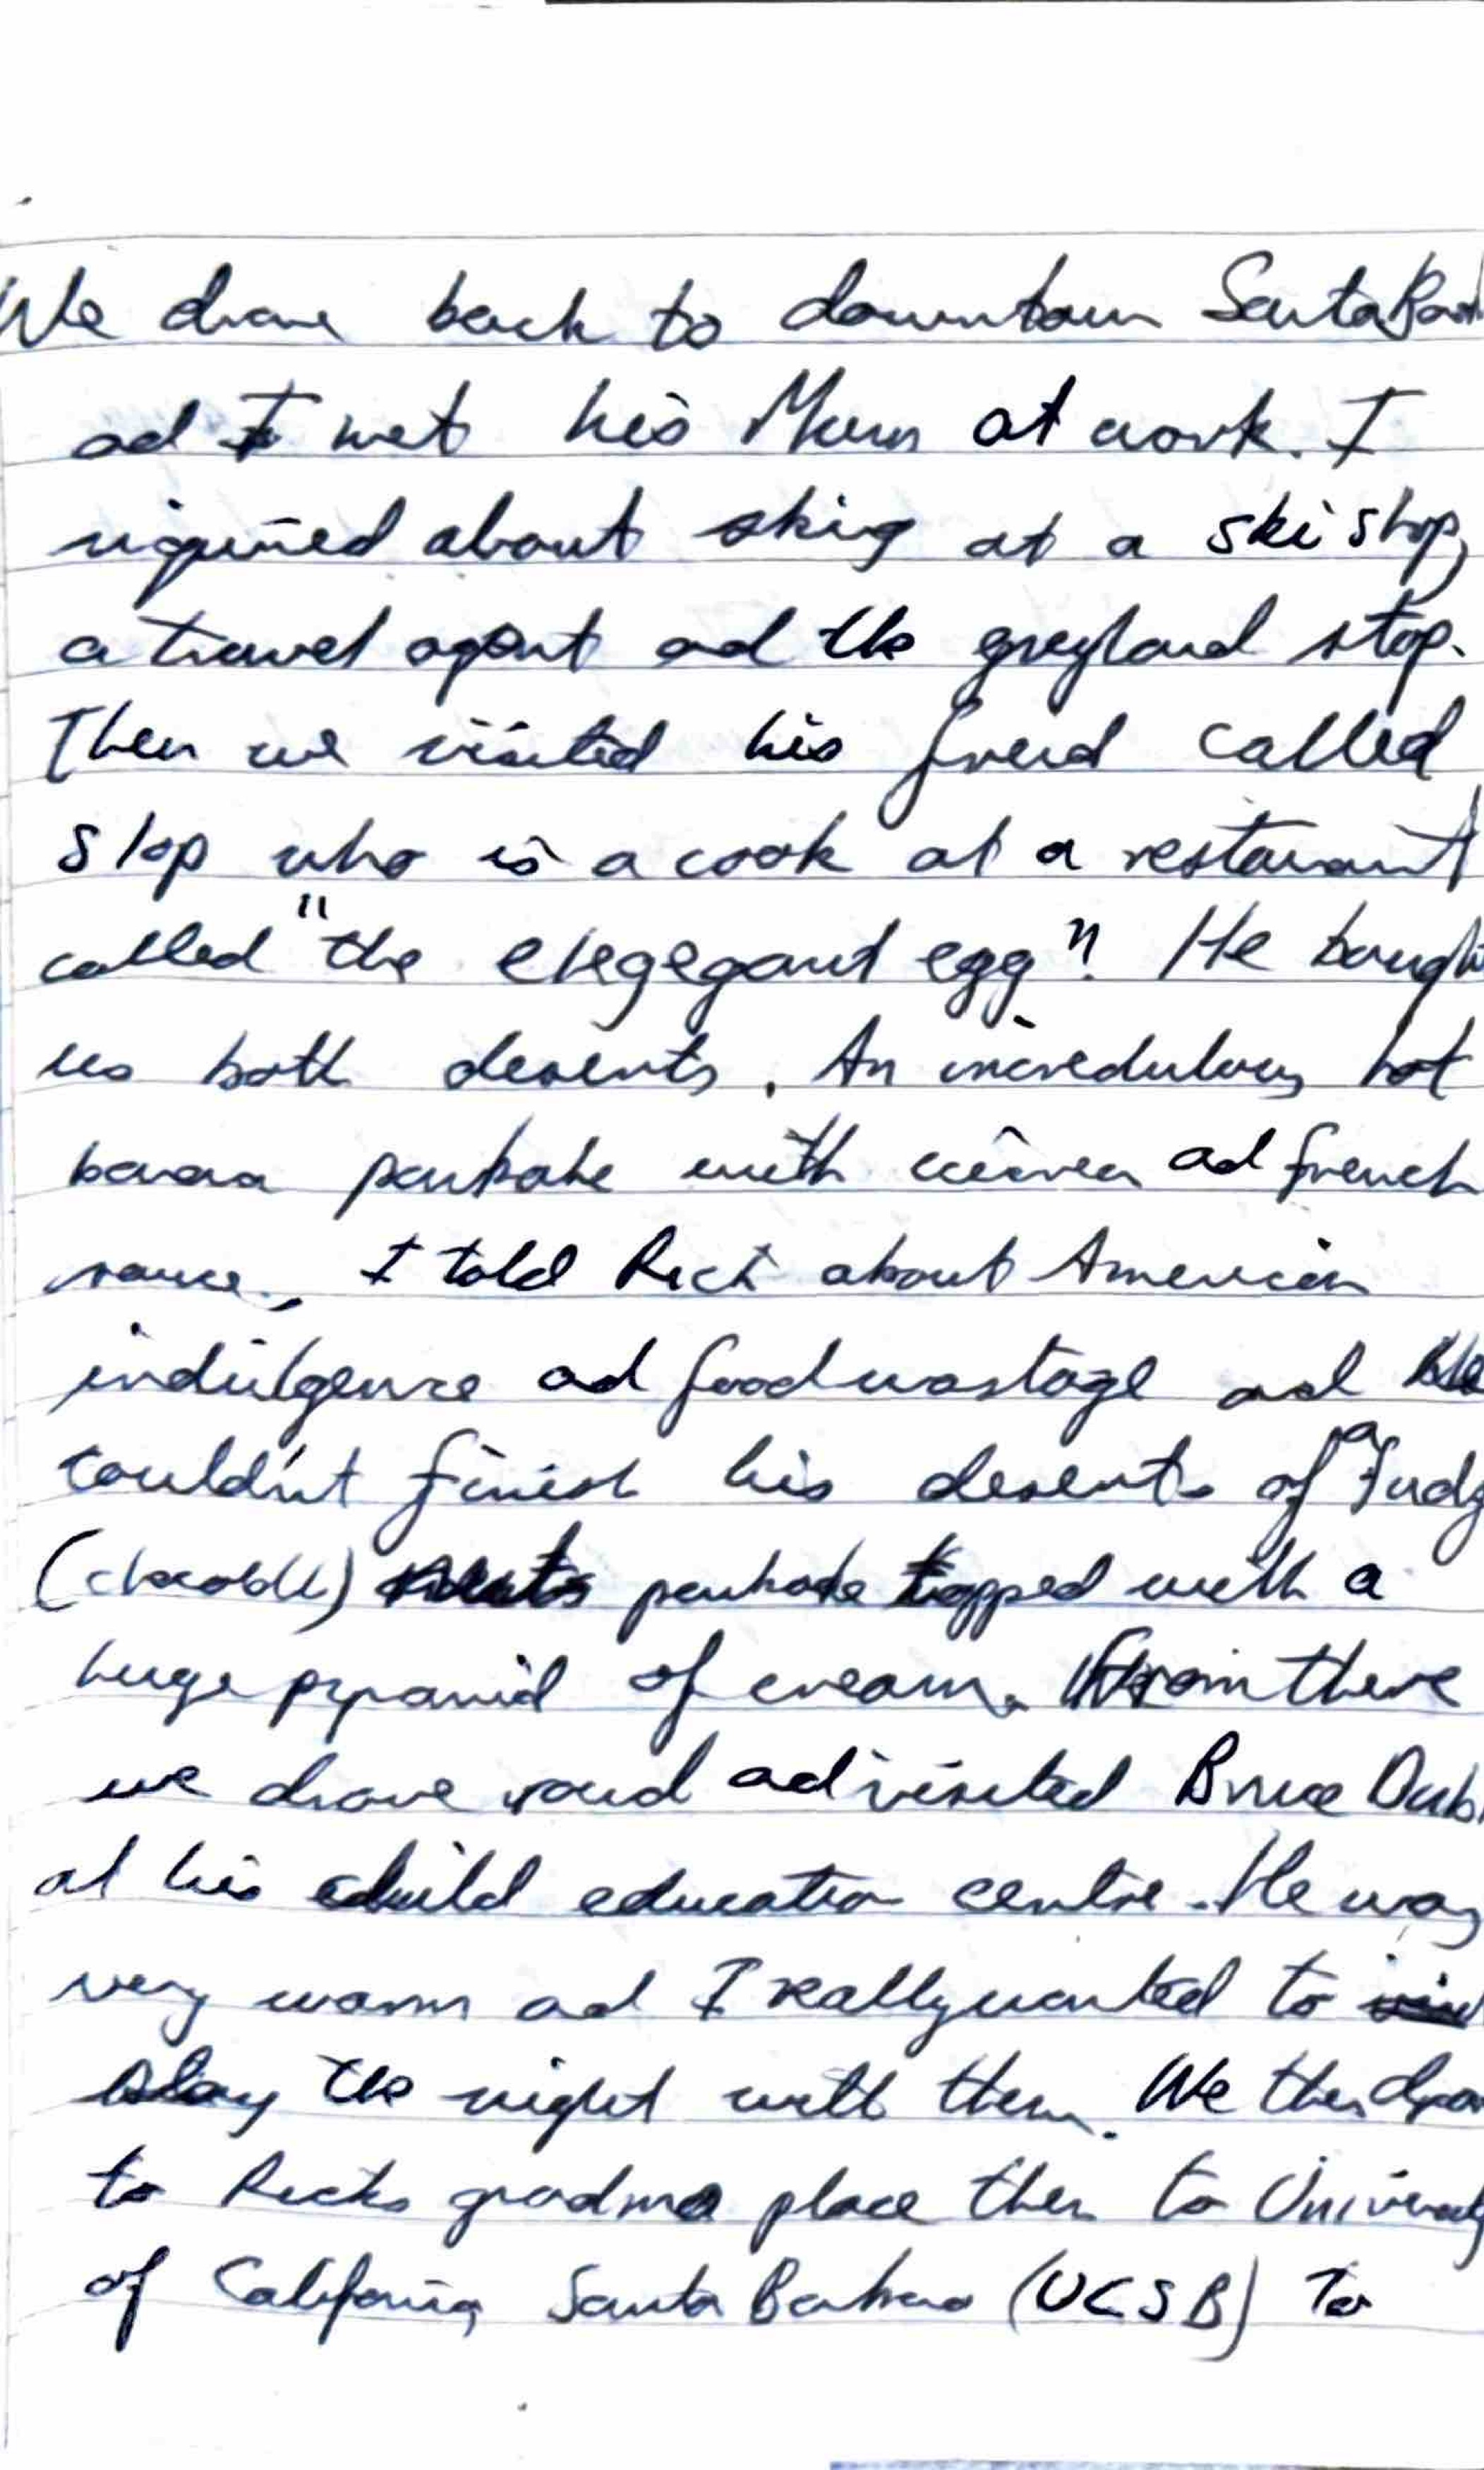 We drove back to downtown Santa Bar
ad I met his Mum at work. I
iquired about skiig at a ski shop,
a travel agent ad the greyhoud stop.
Then we visited his freid called
Slop who is a cook at a restaurant
called "the elegegant egg". He bought
us both deserts. An incredulous hot
banana pankake with cream ad french
sauce. I told Rick about American
indulgence ad food wastage ad He
couldn't finish his deserts of a Fudg
(chocolate) pankake topped with a
huge pyramid of cream. From there
we drove roud ad visited Bruce Dub
at his child education centre. He was
very warm ad I really wanted to
stay the night with them. We then drov
to Ricks gradma place then to University
of California Santa Barbara (UCSB) To